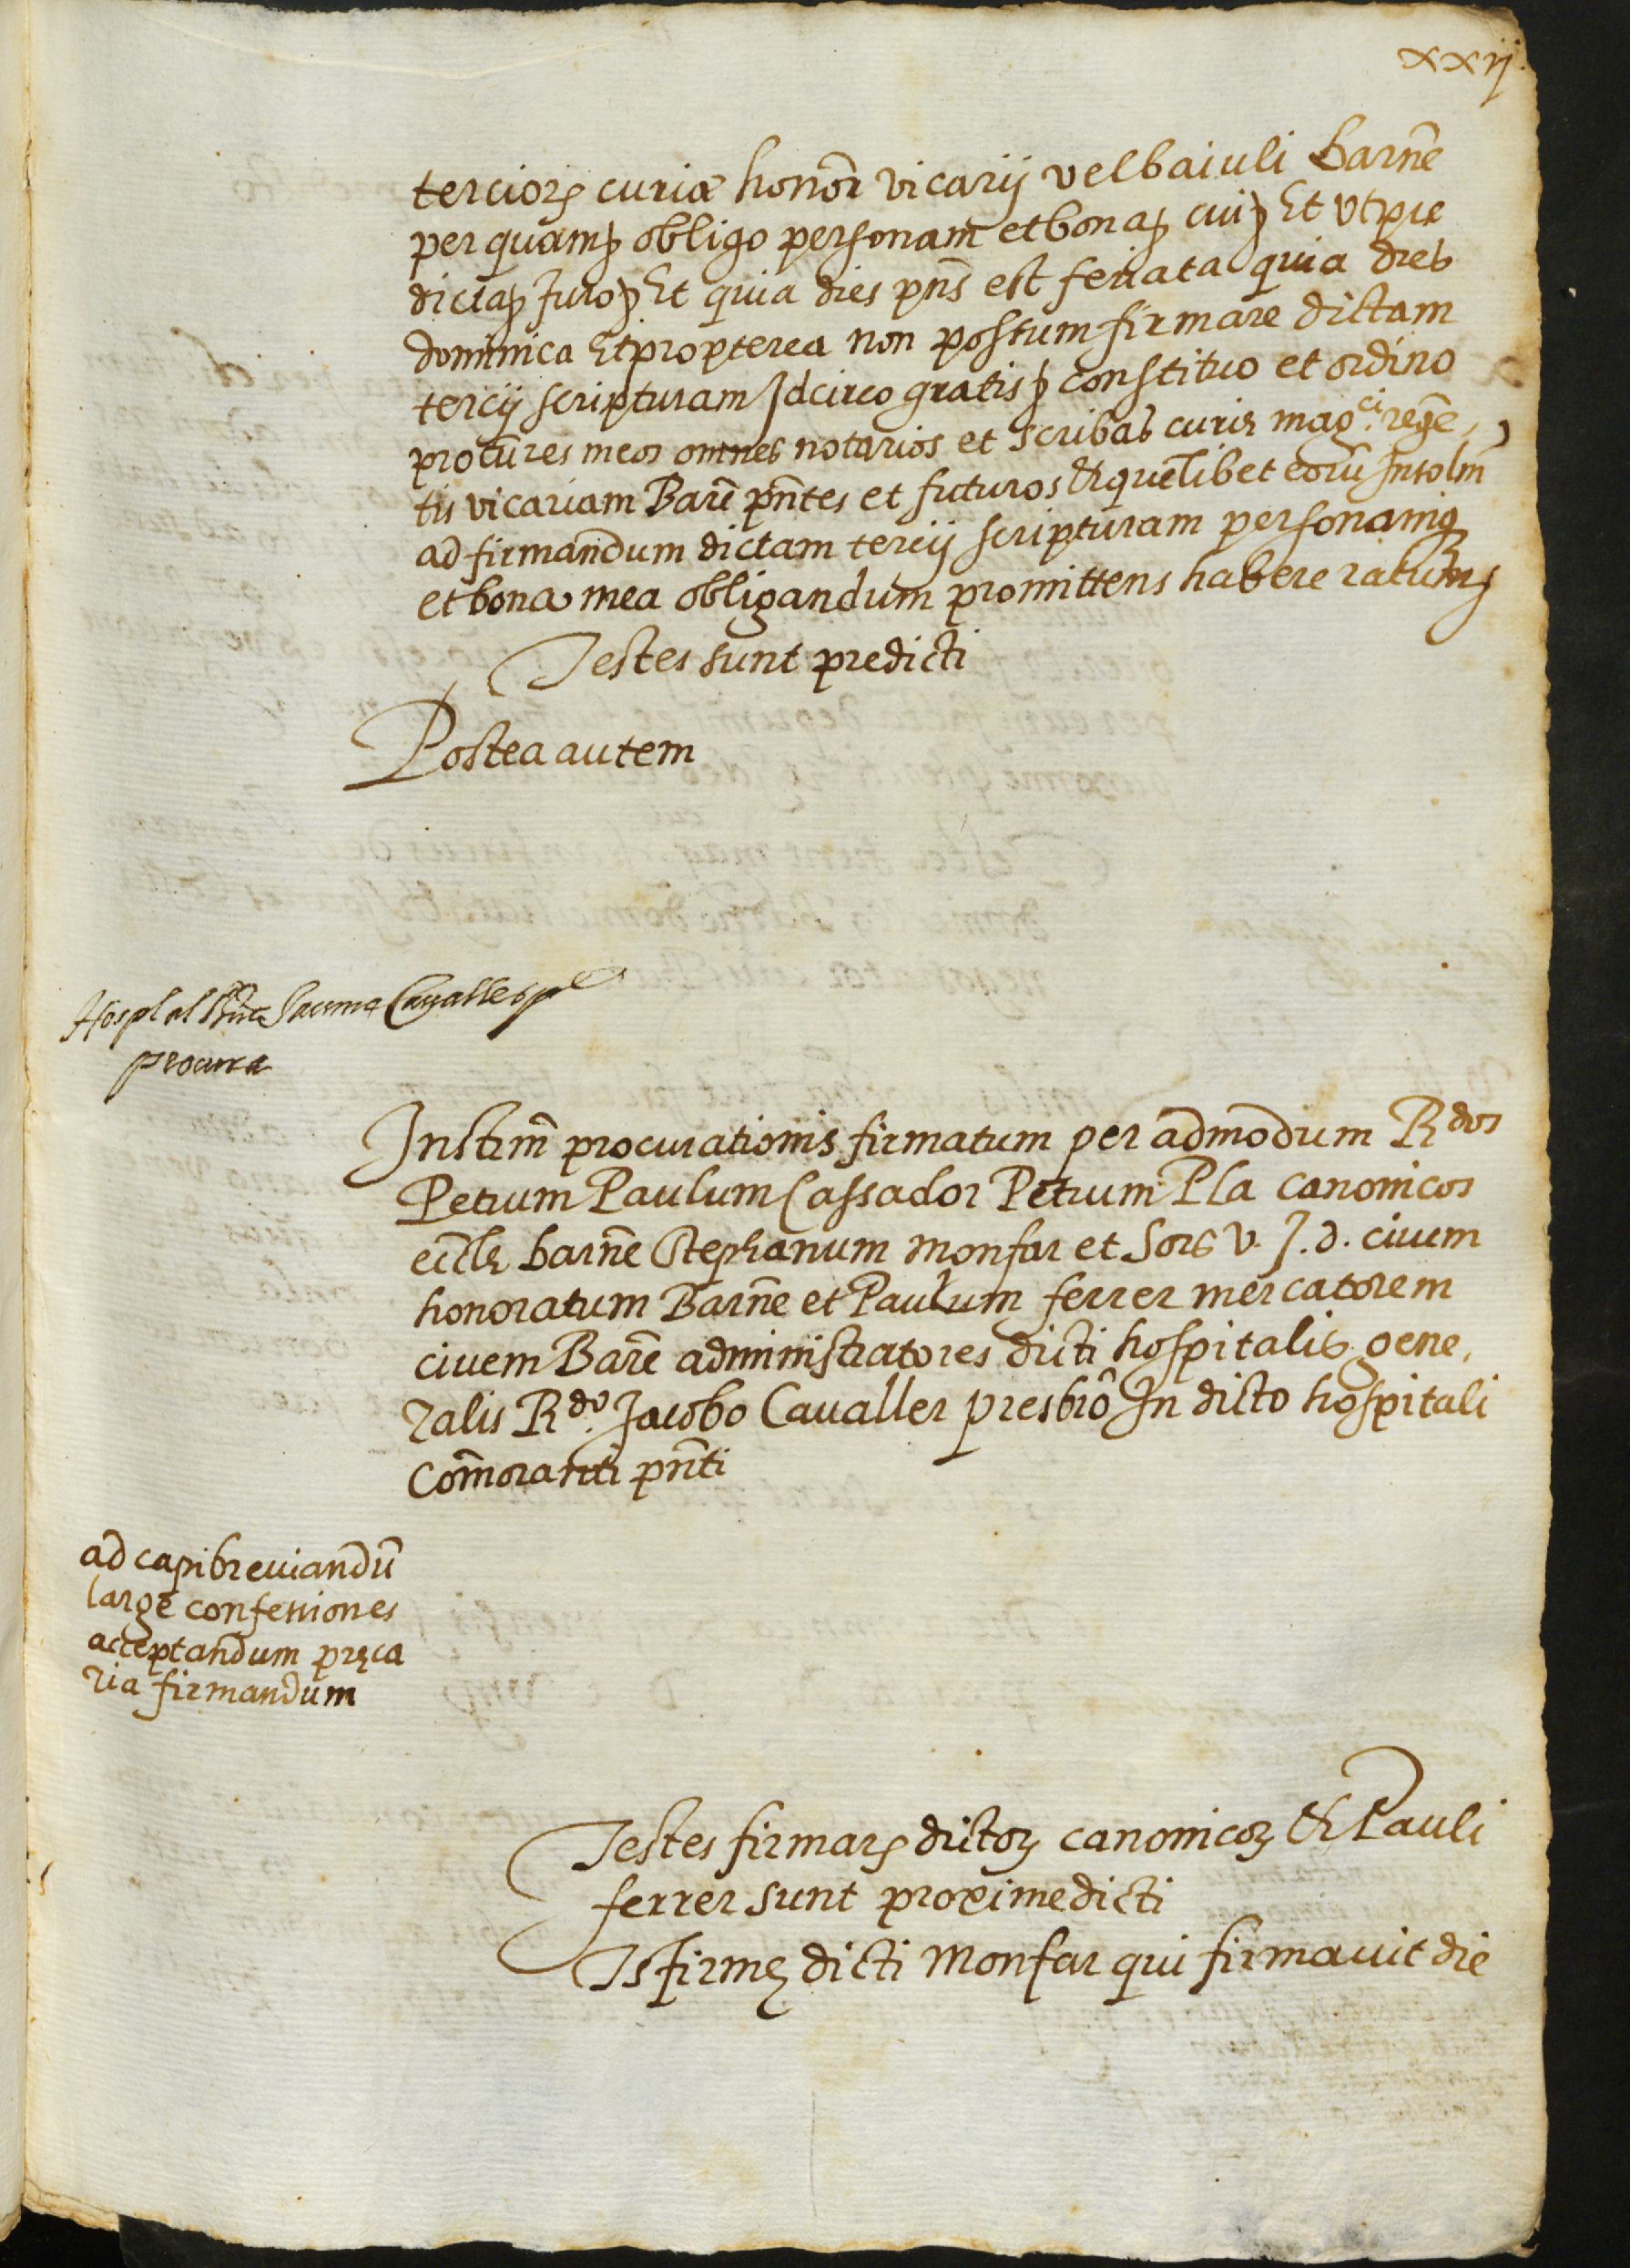 xxij.
terciorꝝ curiæ honor̃ vicarij vel baiuli Barñe
per quam ꝫ obligo personam et bona ꝫ cui ꝫ Et vt pre
dicta ꝫ Juro ꝫ Et quia dies pñs est feriata quia dies
dominica Et propterea non possum firmare dictam
tercij scripturam Idcirco gratis ꝫ constituo et ordino
procũres meos omnes notarios et scribas curiæ mag.ci regẽ,
tis vicariam Barẽ pñtes et futuros Et quẽlibet eorũ Insolm̃
ad firmandum dictam tercij scripturam personamq̃
et bona mea obligandum promittens habere ratum ꝫ
Testes sunt predicti
Postea autem
Hospl al Jaume Cavaller
procura
Instm̃ procurationis firmatum per admodum Rdos
Petrum Paulum Cassador Petrum Pla canonicos
ecclę barñe Stephanum Monfar et Sors V. J. d. ciuem
honoratum Barñe et Paulum ferrer mercatorem
ciuem Barẽ administratores dicti hospitalis gene,
ralis Rdo. Jacobo Caualler presbrõ In dicto hospitali
Com̃oranti pñti
ad capibreuiandũ
large confessiones
acceptandum pręca
ria firmandum
Testes firmarꝝ dictoꝝ canonicoꝝ Et Pauli
ferrer sunt proxime dicti
Ts firmę dicti Monfar qui firmauit die